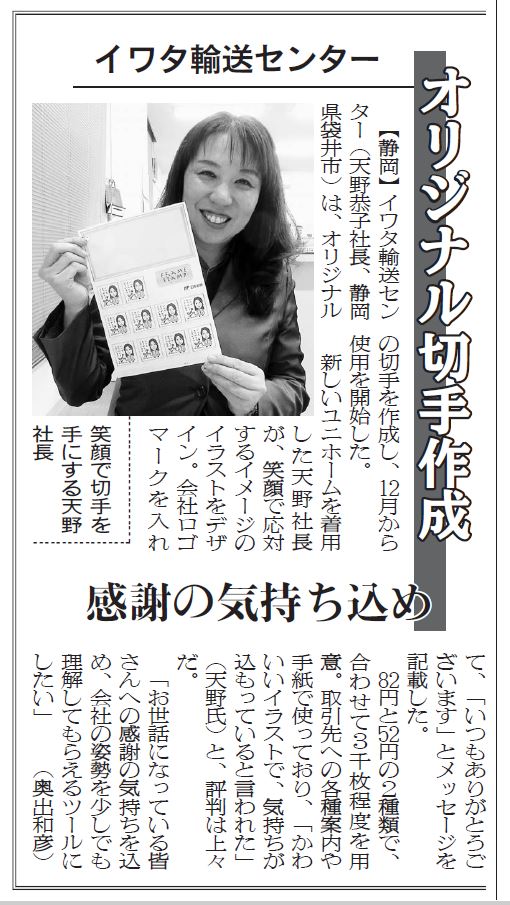 オリジナル切手作成
イワタ輸送センター
感謝の気持ち込め
【静岡】イワタ輸送セン
ター（天野恭子社長、静岡
県袋井市）は、オリジナル
の切手を作成し、12月から
使用を開始した。
新しいユニホームを着用
した天野社長
が、笑顔で応対
するイメージの
イラストをデザ
イン。会社ロゴ
マークを入れ
て、「いつもありがとうご
ざいます」とメッセージを
記載した。
82円と52円の２種類で、
合わせて３千枚程度を用
意。取引先への各種案内や
手紙で使っており、「かわ
いいイラストで、気持ちが
込もっていると言われた」
（天野氏）と、評判は上々
だ。
「お世話になっている皆
さんへの感謝の気持ちを込
め、会社の姿勢を少しでも
理解してもらえるツールに
したい」　（奥出和彦）
笑顔で切手を
手にする天野
社長
FRAME
STAMP